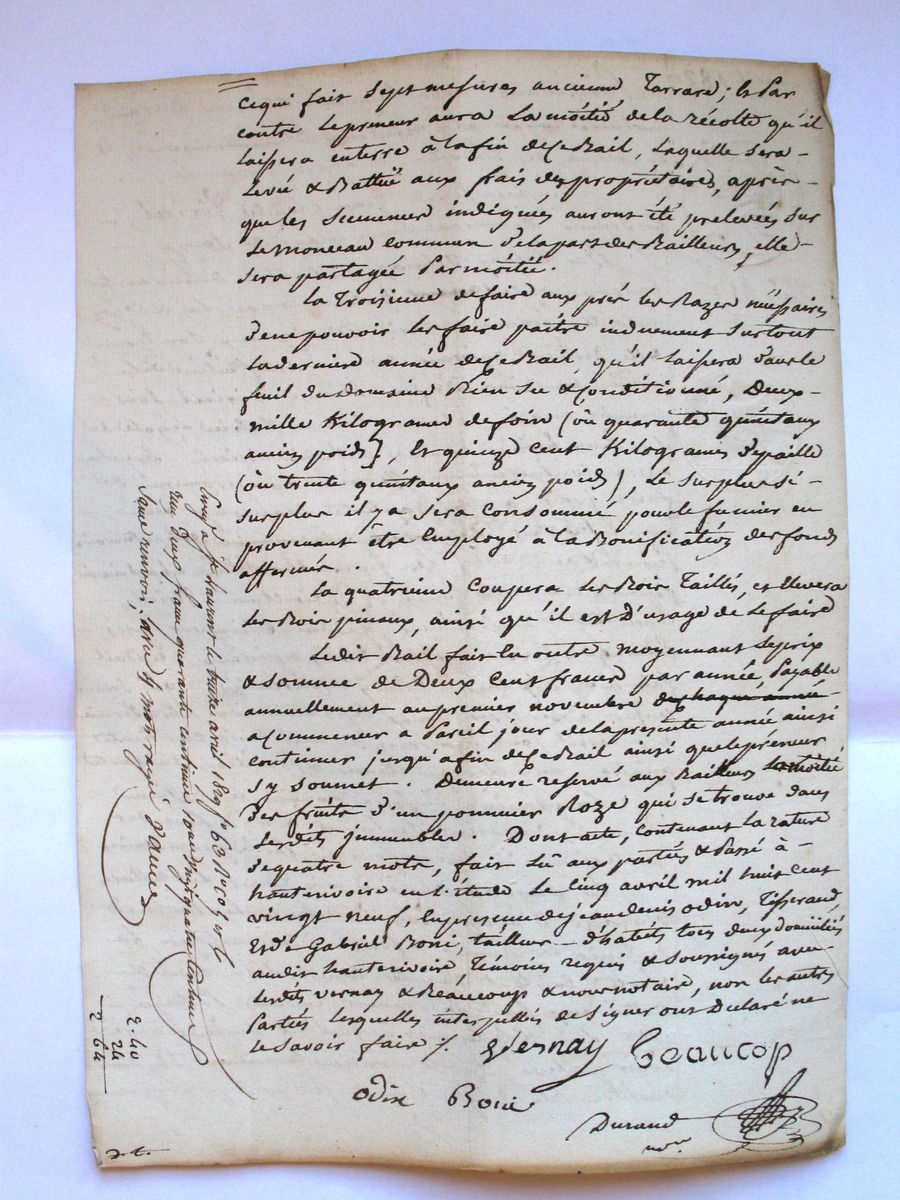 Ce qui fait sept mesures ancienne Tarrare; Et Par
contre le preneur aura la môitié de la récolte qu'il
laissera enterre à la fin de Ce Bail, Laquelle sera
Levée & Battüe aux frais des propriétaires, après
que les semences indiquées auront été prélevées sur
Le monceau commun d'ela part des Bailleurs, elle
sera partagée Par môitié.
La Troisieme de faire aux prés les Razes nécéssaires
D'ene pouvoir les faire paître induement Surtout
la derniere année de Ce Bail, qu'il laissera Dans le
feuil du domaine Bien Sec & Conditionné, Deux
mille Kilogrames de foin (ou quarante quintaux
anciens poids), Et quinze Cent Kilogrames de paille
(ou trente quintaux anciens poids), Le Surplus si
surplus il y a sera Consommé pour le fumier en
provenant être Employé à la Bonification des fonds
affermés.
La quatrieme Coupera Les Bois Taillis, et Elevera
Les Bois pinaux, ainsi qu'il est D'usage de Le faire
Ledit Bail fait En outre moyennant Le prix
& somme de Deux Cent francs par année, Payable
annuellement au premier novembre de chaque année
a Commencer a Pareil jour de la présente année ainsi
Continuer jusqu'a fin de Ce Bail ainsi que le préneur
s'y soumet. Demeure reservé aux Bailleurs la môitié
Des fruits D'un pommier Roze qui se trouve dans
Lesdits immeubles. Dont acte, Contenant La rature
De quatre mots, fait Lû aux parties & Passé à
hauterivoire en L'étude Le Cinq avril mil huit Cent
vingt neuf, En présence de jean denis odin, Tisserand,
Et de Gabriel Boni, tailleur d'habits tous deux domiciliés
audit hauterivoire, Témoins requis & soussignés avec
Lesdits vernay & Beaucoup & nous notaire, non les autres
Parties lesquelles interpellés de signer ont Déclaré ne
Le savoir faire %.
Vernay Beaucop
odin Boni
Durand
nore
Enrgé à St Laurent le treize avril 1829 fo 63
reçu Deux francs quarante centimes
Seme renvoi, raturé 4 mots rayés
2.40
24
2 64